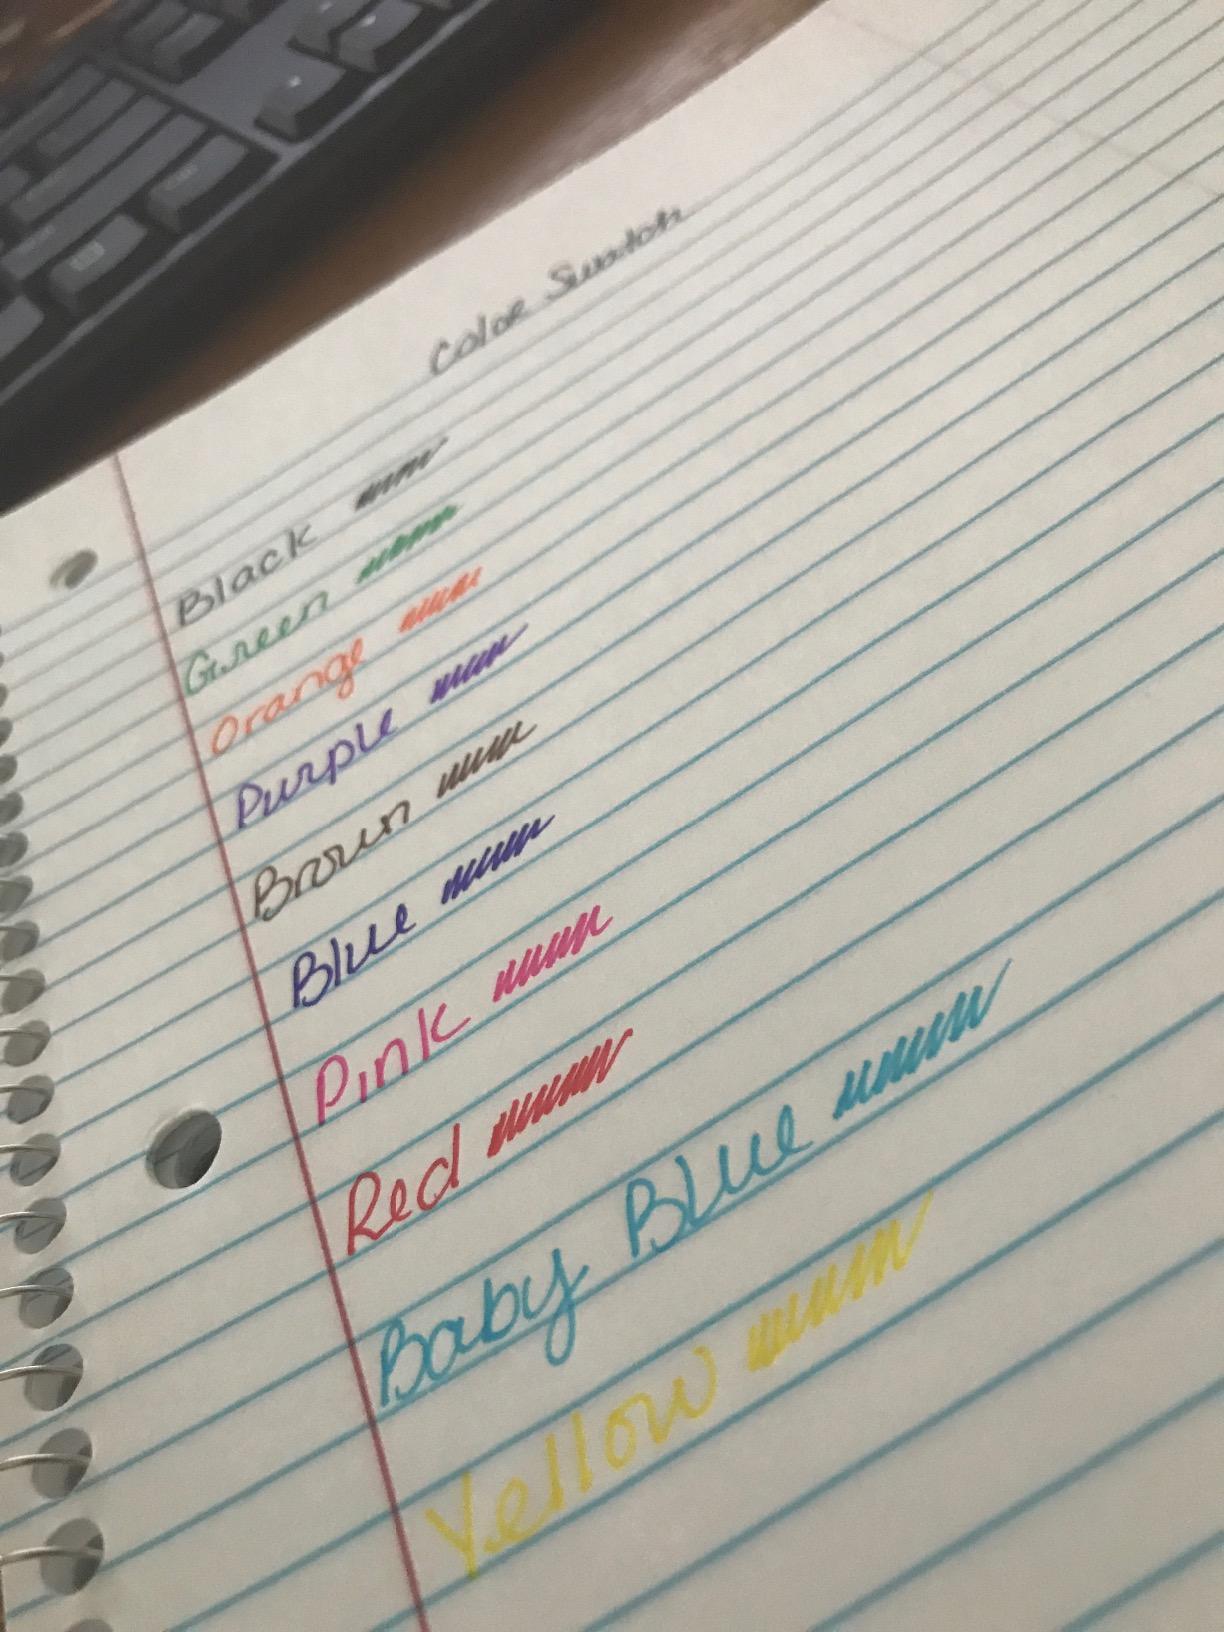 Color Swatch
Black
Green
Orange
Purple
Brown
Blue
Pink
Red
Baby Blue
Yellow